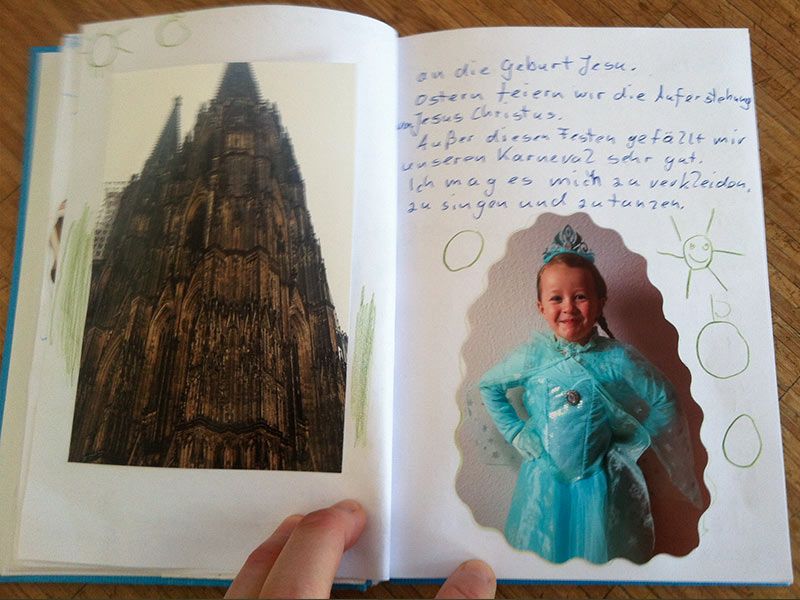 an die Geburt Jesu.
Ostern feiern wir die Auferstehung
von Jesus Christus.
Außer diesen Festen gefällt mir
unseren Karneval sehr gut.
Ich mag es mich zu verkleiden,
zu singen und zu tanzen.